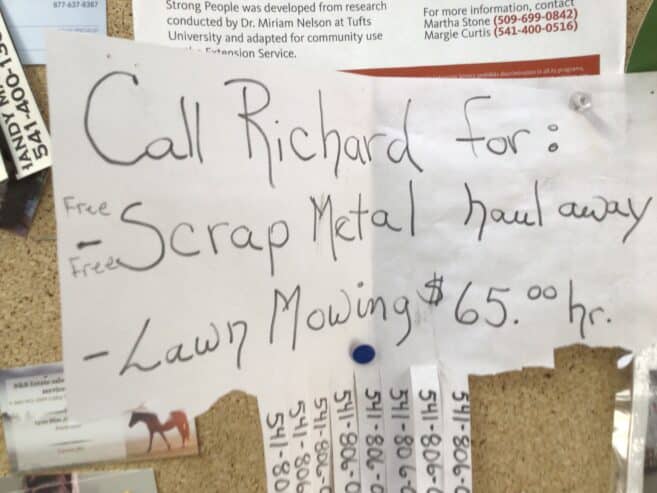 877-637-8367
Strong People was developed from research
conducted by Dr. Miriam Nelson at Tufts
University and adapted for community use
Extension Service.
For more information, contact
Martha Stone (509-699-0842)
Margie Curtis (541-400-0516)
HANDY M
541-400-13
Call Richard for:
Free
- Scrap Metal haul away
Free
- Lawn Mowing $65.00 hr.
541-80
541-806
541-806-0
541-806-0
541-806-0
541-806-0
541-806-0
541-806-0